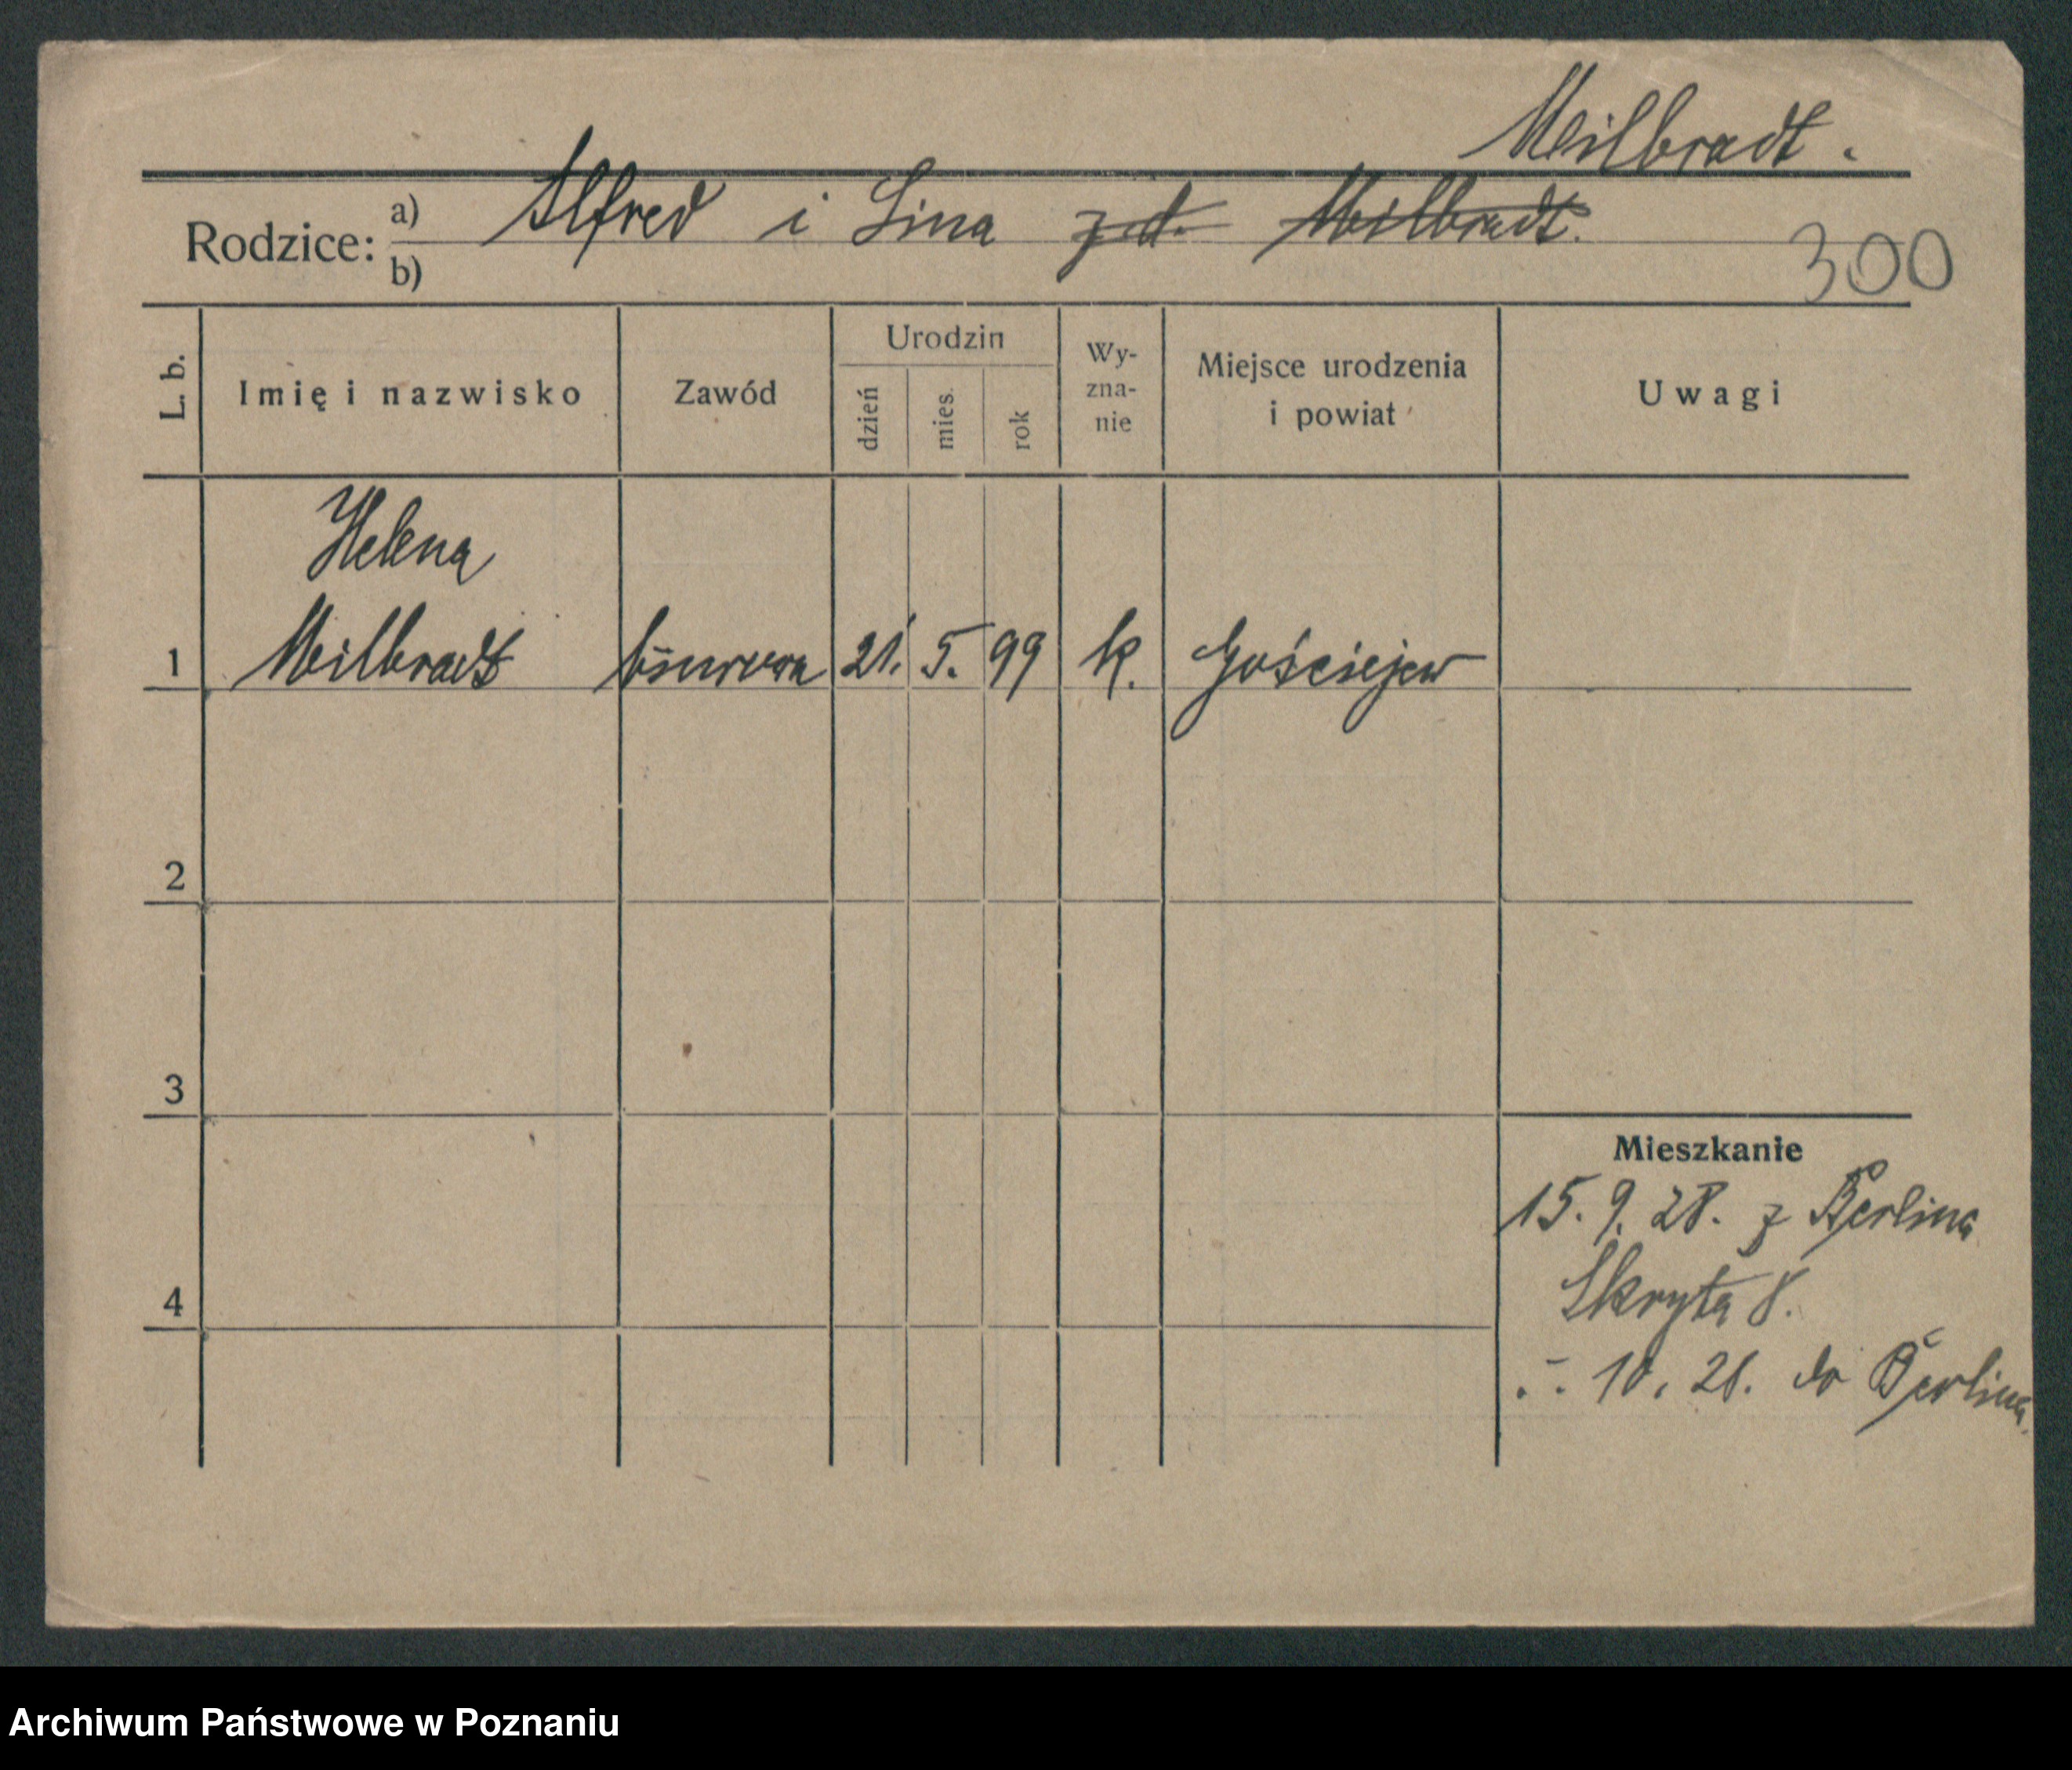 Meilbradt.
Rodzice: a) Alfred i Lina z d. Meilbradt.
b)
300
L. b.
Imię i nazwisko
Zawód
Urodzin
dzień
mies.
rok
Wy-
zna-
nie
Miejsce urodzenia
i powiat
Uwagi
Helena
1 Meilbradt biurowa 21. 5. 99 k. Gościejew
2
3
4
Mieszkanie
15. 9. 28. z Berlina
Skryta 8.
10. 28. do Berlina.
Archiwum Państwowe w Poznaniu